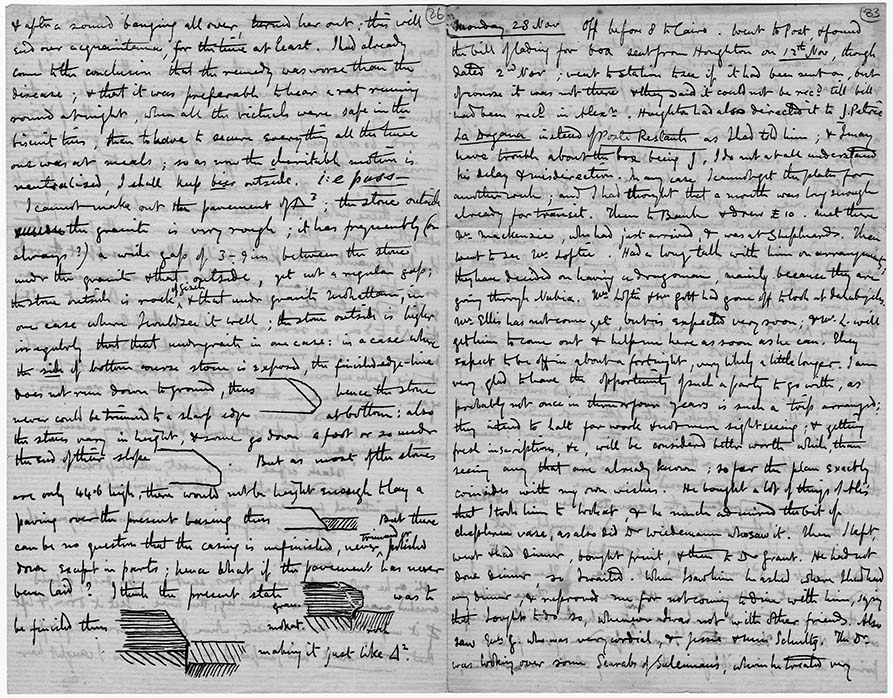 26
& after a sound banging all over, turned her out; this will
end our acquaintance, for the time at least. I had already
come to the conclusion that the remedy was worse than the
disease; & that it was preferable to hear a rat running
round at night, when all the victuals were safe in the
biscuit tins, than to have to secure everything all the time
one was at meals; so as now the charitable motive is
neutralised, I shall keep outside. i.e. puss
I cannot make out the pavement of Δ 3; the stone outside
the granite is very rough; it has frequently (or
always?) a wide gap of 3-9 in between the stone
under the granite & that outside, yet not a regular gap;
the stone outside is rock & that under granite Mokattam; in
one case where I could see it well; the stone outside is higher
irregularly that that under granite in one case: in a case where
the side of bottom course stone is exposed, the finished edge-line
does not run down to ground, thus hence the stone
never could be trimmed to a sharp edge at bottom: also
the stones vary in height, & some go down a foot or so under
the end of their slope. But as most of the stones
are only 44.6 high, there would not be height enough to lay a
paving over the present basing thus But there
can be no question that the casing is unfinished, never trimmed polished
down except in parts; hence what if the pavement has never
been laid? I think the present state was to
be finished thus
making it just like Δ 2
83
Monday 28 Nov Off before 8 to Cairo. Went to Post, & found
the bill of lading for box sent from Houghton on 12th Nov, though
dated 2nd Nov; went to station to see if it had been sent on, but
of course it was not there & they said it could not be recd till bill
had been recd in Alexa. Houghton had also directed it to J. Petrie
La Dogana instead of Poste Restante as I had told him; & I may
have trouble about the box being J, I do not at all understand
his delay & misdirection. In any case I cannot get the plates for
another week; and I had thought that a month was long enough
already for transit. Then to Bank & drew £10. Met there
Mr Mackenzie, who had just arrived & was at Shepheards. Then
went to see Mr Loftie. Had a long talk with him on arrangements,
they have decided on having a dragoman, mainly because they are
going through Nubia. Mrs Loftie & Mr Gott had gone off to look at dahabiyehs.
Mr Ellis has not come yet, but is expected very soon; & Mr L. will
get him to come out & help me here as soon as he can. They
expect to be off in about a fortnight, very likely a little longer. I am
very glad to have the opportunity of such a party to go with, as
probably not once in three or four years is such a trip arranged;
they intend to halt for work & not mere sight seeing; & getting
fresh inscriptions, &c, will be considered better worth while than
seeing any that are already known; so far the plan exactly
coincides with my own wishes. He bought a lot of things
that I took him to look at, & he much admired the bit of
Chephren vase, as also did Dr Wiedemann who saw it. Then I left,
went & had dinner, bought fruit, & then to Dr Grant. He had not
done dinner, so I waited. When I saw him he asked where I had had
my dinner, & reproved me for not coming to dine with him, saying
that I ought to do so, whenever I was not with other friends. Also
saw Mrs G. who was very cordial, & Jessie & Miss Schultz. The Dr
was looking over some Scarabs of Suleiman's, whom he treated very